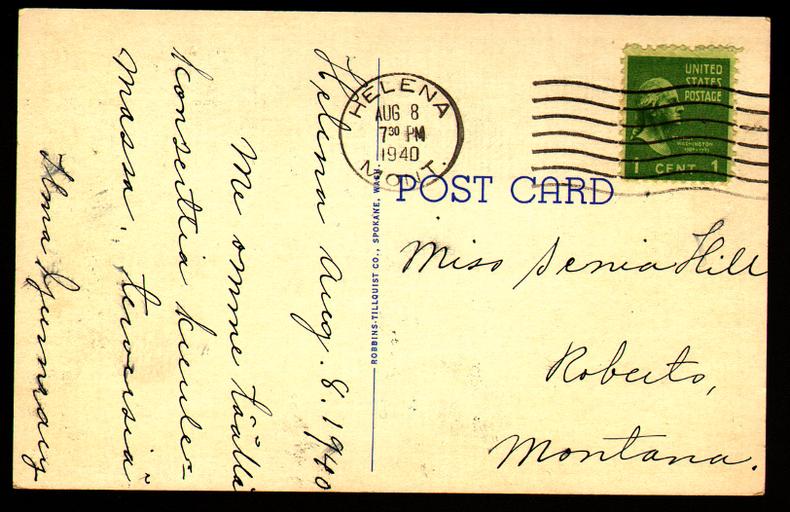 Helena Aug. 8. 1940
Me omme täällä
Konserttia kuule-
massa. terveisiä
Alma
HELENA
AUG 8
7³⁰ PM
1940
MONT.
UNITED
STATES
POSTAGE
WASHINGTON
1 CENT 1
POST CARD
ROBBINS-TILLQUIST CO., SPOKANE, WASH.
Miss Senia Hill
Roberts,
Montana.